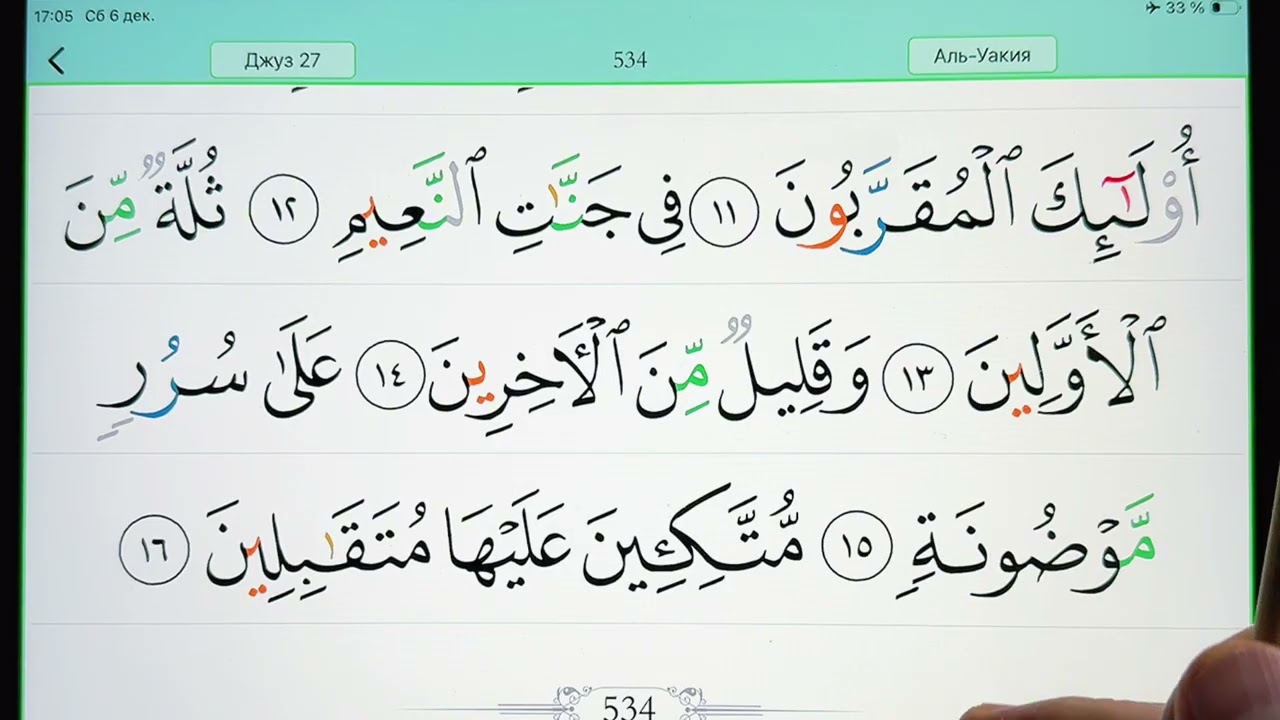 17:05 Сб 6 дек. 33 %
Джуз 27 534 Аль-Уакия
أُو۟لَـٰٓئِكَ ٱلْمُقَرَّبُونَ ١١ فِى جَنَّـٰتِ ٱلنَّعِيمِ ١٢ ثُلَّةٌ مِّنَ
ٱلْأَوَّلِينَ ١٣ وَقَلِيلٌ مِّنَ ٱلْـَٔاخِرِينَ ١٤ عَلَىٰ سُرُرٍ
مَّوْضُونَةٍ ١٥ مُّتَّكِـِٔينَ عَلَيْهَا مُتَقَـٰبِلِينَ ١٦
534